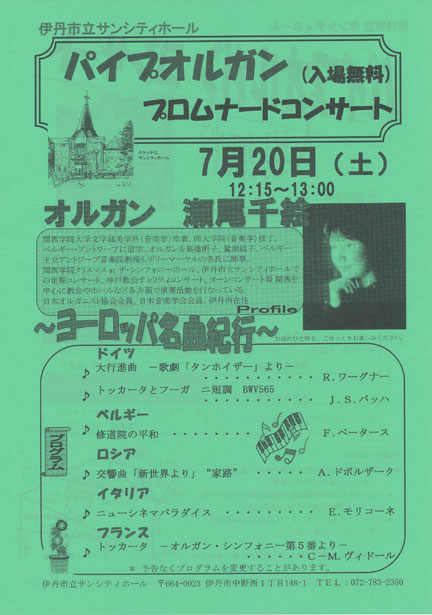 伊丹市立サンシティホール
パイプオルガン（入場無料）
プロムナードコンサート
スケッチは、
サンシティホーム
7月20日（土）
12:15～13:00
オルガン 瀬尾千絵
関西学院大学文学部美学科（音楽学）卒業。同大学院（音楽学）修了。
ベルギー・アントワープに留学。オルガンを高橋明子、鷲淵紹子、ベルギー
王立アントワープ音楽院教授S.デリーマーケルの各氏に師事。
関西学院クリスマスat ザ・シンフォニーホール、伊丹市立サンシティホールで
の定期コンサート、神戸教会チャリティコンサート、ヌーンコンサート等 関西を
中心に教会やホールなど各方面で演奏活動を行なっている。
日本オルガニスト協会会員。日本音楽学会会員。伊丹市在住
Profile
お昼のひと時を、ごゆっくりお楽しみください。
～ヨーロッパ名曲紀行～
プログラム
ドイツ
♪ 大行進曲 －歌劇「タンホイザー」より－
・・・・・・・・・・・・ R.ワーグナー
♪ トッカータとフーガ ニ短調 BWV565
・・・・・・・・・・・・ J.S.バッハ
ベルギー
♪ 修道院の平和 ・・・・・・・・ F.ペータース
ロシア
♪ 交響曲「新世界より」“家路” ・・・・・ A.ドボルザーク
イタリア
♪ ニューシネマパラダイス ・・・・・・・ E.モリコーネ
フランス
♪ トッカータ －オルガン・シンフォニー第5番より－
・・・・・・・・・・・・ C－M.ヴィドール
* 予告なくプログラムを変更することがあります。
伊丹市立サンシティホール 〒664-0023 伊丹市中野西1丁目148-1 TEL:072-783-2350